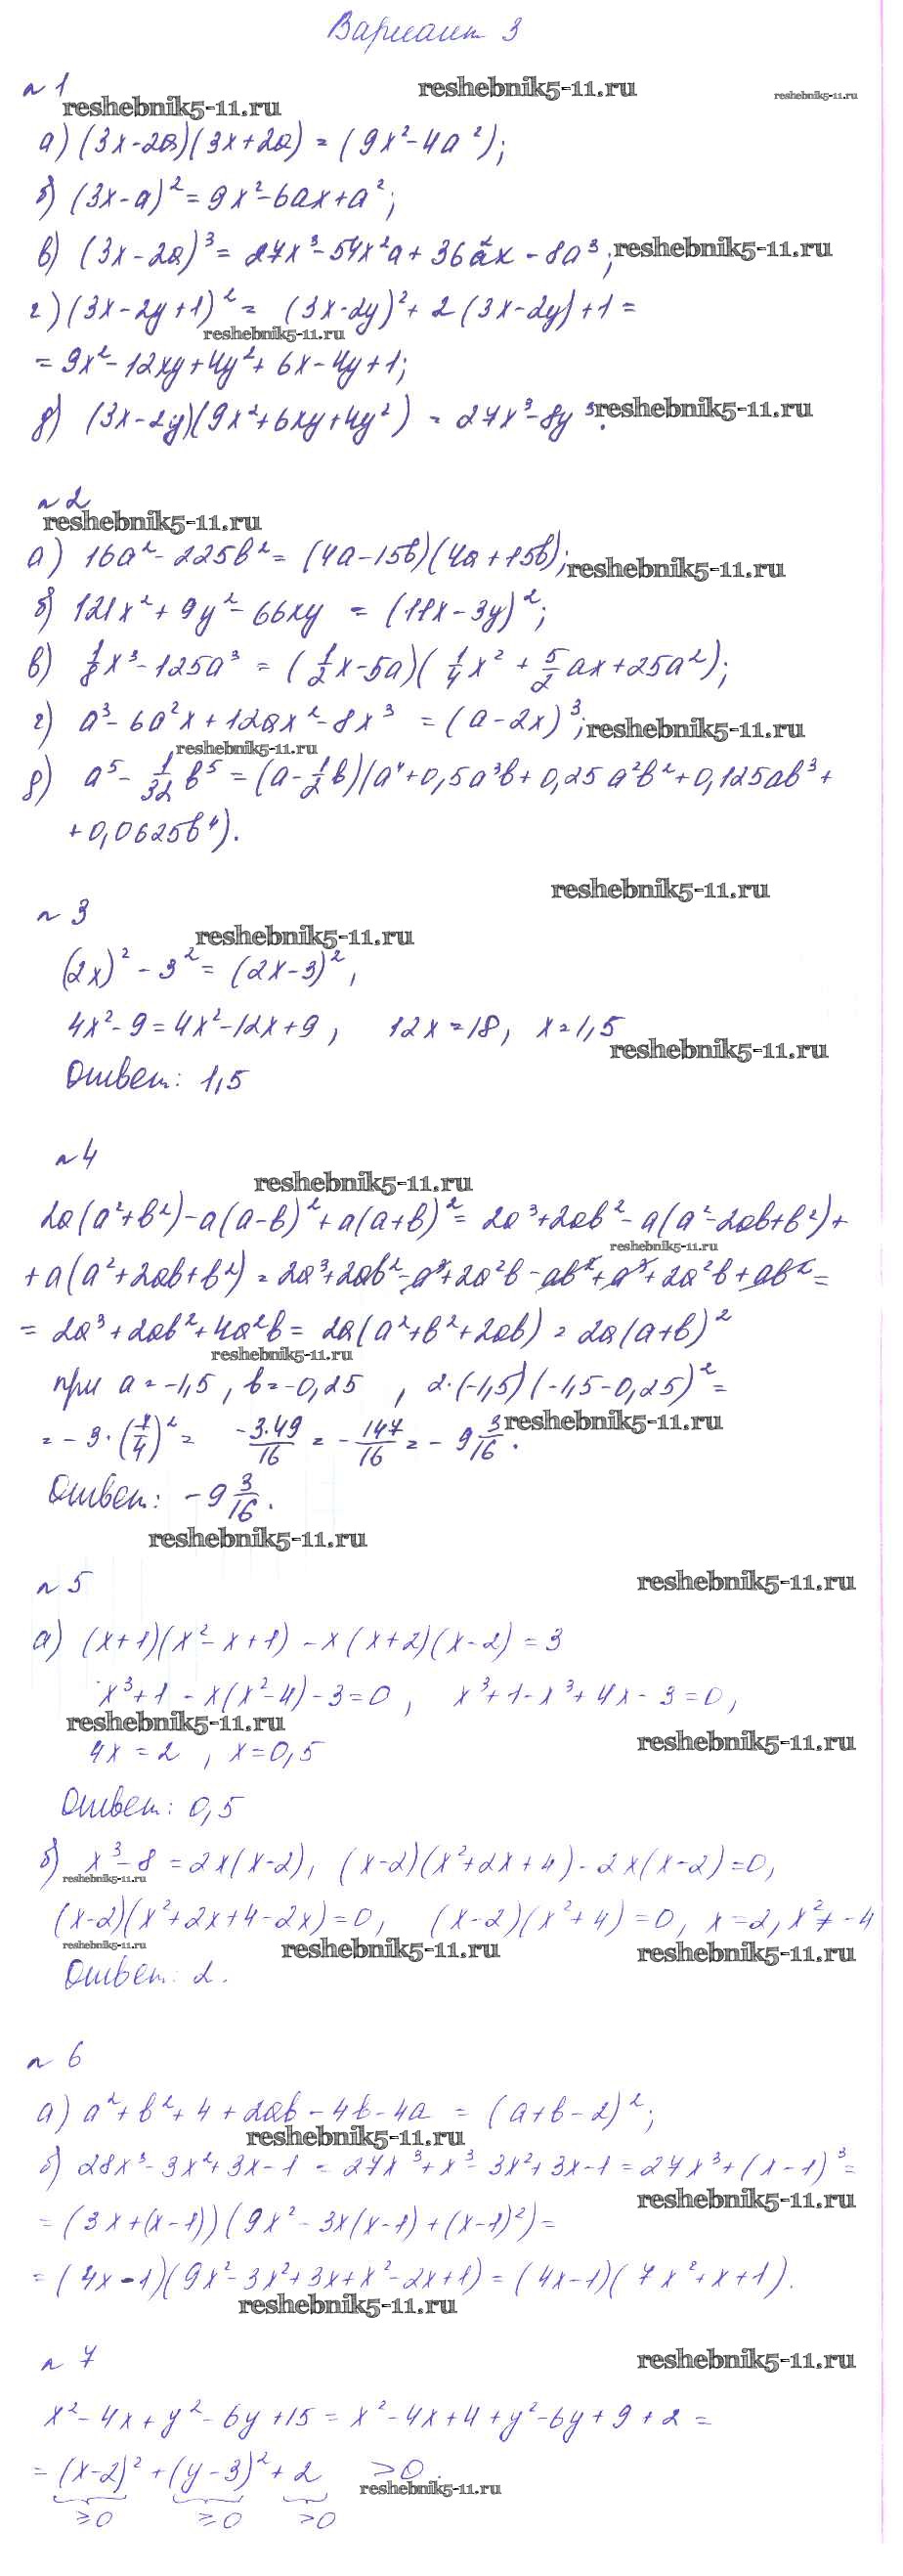 Вариант 3
№1
reshebnik5-11.ru
reshebnik5-11.ru
reshebnik5-11.ru
а) (3x-2a)(3x+2a) = (9x²-4a²);
б) (3x-a)² = 9x²-6ax+a²;
в) (3x-2a)³ = 27x³-54x²a+36a²x-8a³; reshebnik5-11.ru
г) (3x-2y+1)² = (3x-2y)²+2(3x-2y)+1=
reshebnik5-11.ru
=9x²-12xy+4y²+6x-4y+1;
д) (3x-2y)(9x²+6xy+4y²) = 27x³-8y³. reshebnik5-11.ru
№2
reshebnik5-11.ru
а) 16a²-225b² = (4a-15b)(4a+15b); reshebnik5-11.ru
б) 121x²+9y²-66xy = (11x-3y)²;
в) 1/8x³-125a³ = (1/2x-5a)(1/4x²+5/2ax+25a²);
г) a³-6a²x+12ax²-8x³ = (a-2x)³; reshebnik5-11.ru
reshebnik5-11.ru
д) a⁵-1/32b⁵ = (a-1/2b)(a⁴+0,5a³b+0,25a²b²+0,125ab³+
+0,0625b⁴).
reshebnik5-11.ru
№3
reshebnik5-11.ru
(2x)²-3² = (2x-3)²,
4x²-9=4x²-12x+9, 12x=18, x=1,5
reshebnik5-11.ru
Ответ: 1,5
№4
reshebnik5-11.ru
2a(a²+b²)-a(a-b)²+a(a+b)² = 2a³+2ab²-a(a²-2ab+b²)+
reshebnik5-11.ru
+a(a²+2ab+b²) = 2a³+2ab²-a³+2a²b-ab²+a³+2a²b+ab²=
=2a³+2ab²+4a²b = 2a(a²+b²+2ab) = 2a(a+b)²
reshebnik5-11.ru
при a=-1,5, b=-0,25, 2·(-1,5)(-1,5-0,25)²=
=-3·(7/4)² = -3·49/16 = -147/16 = -9 3/16. reshebnik5-11.ru
Ответ: -9 3/16.
reshebnik5-11.ru
№5
reshebnik5-11.ru
а) (x+1)(x²-x+1)-x(x+2)(x-2)=3
x³+1-x(x²-4)-3=0, x³+1-x³+4x-3=0,
reshebnik5-11.ru
4x=2, x=0,5
reshebnik5-11.ru
Ответ: 0,5
б) x³-8=2x(x-2), (x-2)(x²+2x+4)-2x(x-2)=0,
reshebnik5-11.ru
(x-2)(x²+2x+4-2x)=0, (x-2)(x²+4)=0, x=2, x²≠-4
reshebnik5-11.ru
reshebnik5-11.ru
reshebnik5-11.ru
Ответ: 2.
№6
а) a²+b²+4+2ab-4b-4a = (a+b-2)²;
reshebnik5-11.ru
б) 28x³-3x²+3x-1 = 27x³+x³-3x²+3x-1=27x³+(x-1)³=
reshebnik5-11.ru
=(3x+(x-1))(9x²-3x(x-1)+(x-1)²)=
=(4x-1)(9x²-3x²+3x+x²-2x+1)=(4x-1)(7x²+x+1).
reshebnik5-11.ru
№7
reshebnik5-11.ru
x²-4x+y²-6y+15=x²-4x+4+y²-6y+9+2=
=(x-2)²+(y-3)²+2 >0.
reshebnik5-11.ru
≥0 ≥0 >0